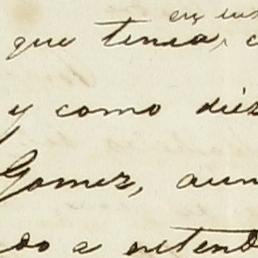 en
que tenia,
y como diez
Gomez, aun
do a entend